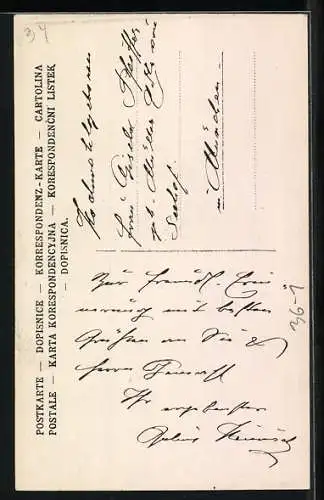 POSTKARTE — DOPISNICE — KORRESPONDENZ-KARTE — CARTOLINA
POSTALE — KARTA KORESPONDENCYJNA — KORESPONDENČNÍ LÍSTEK
— DOPISNICA.
Hochwohlgeboren
Frau Gisela
geb. Müller
Seehof
München
Zur freundl. Erin
nerung mit besten
Grüßen an Sie &
Herrn
Ihr ergebenster
Julius
36-1